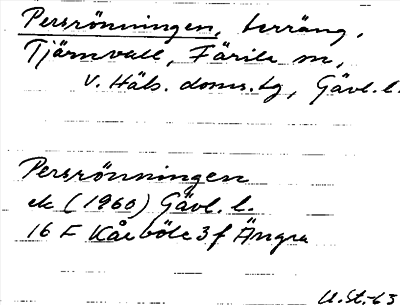 Persrönningen, terräng,
Tjärnvall, Färila sn,
V. Häls. doms.tg, Gävl. l.
Persrönningen
ek (1960) Gävl. l.
16 F Kårböle 3 f Ängra
U.St.-63